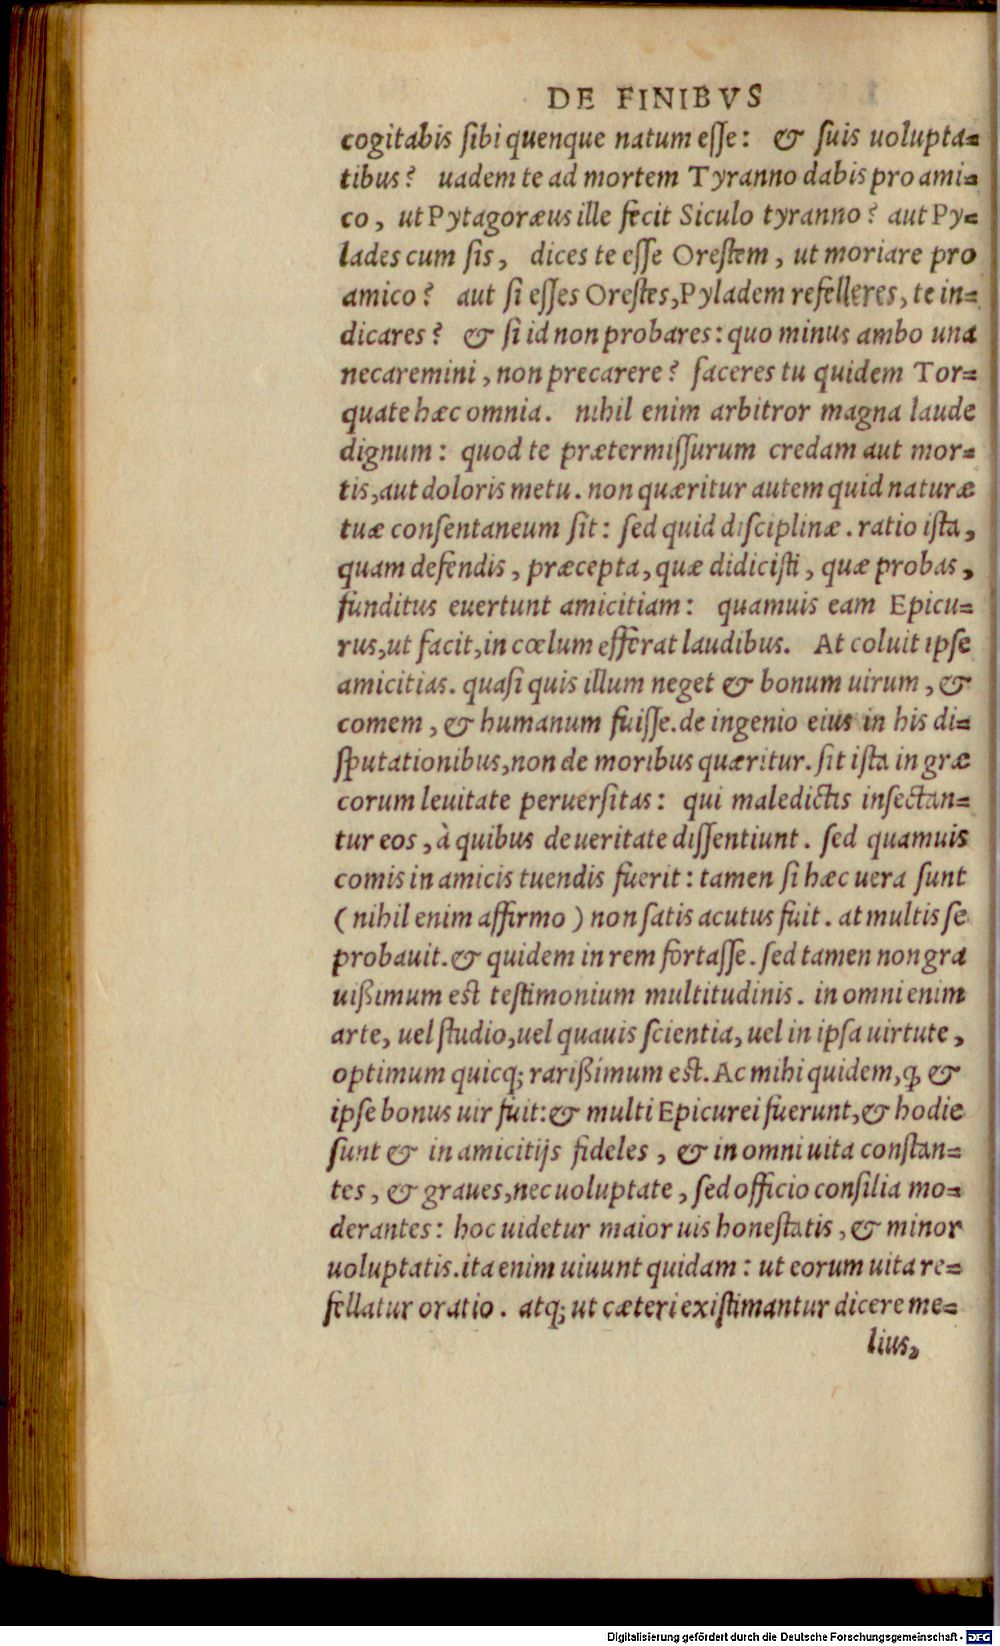 DE FINIBVS
cogitabis ſibi quenque natum eſſe: & ſuis uolupta-
tibus? uadem te ad mortem Tyranno dabis pro ami-
co, ut Pytagoræus ille fecit Siculo tyranno? aut Py-
lades cum ſis, dices te eſſe Oreſtem, ut moriare pro
amico? aut ſi eſſes Oreſtes, Pyladem refelleres, te in-
dicares? & ſi id non probares: quo minus ambo una
necaremini, non precarere? faceres tu quidem Tor-
quate hæc omnia. nihil enim arbitror magna laude
dignum: quod te prætermiſſurum credam aut mor-
tis, aut doloris metu. non quæritur autem quid naturæ
tuæ conſentaneum ſit: ſed quid diſciplinæ. ratio iſta,
quam defendis, præcepta, quæ didiciſti, quæ probas,
funditus euertunt amicitiam: quamuis eam Epicu-
rus, ut facit, in cœlum efferat laudibus. At coluit ipſe
amicitias. quaſi quis illum neget & bonum uirum, &
comem, & humanum fuiſſe. de ingenio eius in his di-
ſputationibus, non de moribus quæritur. ſit iſta in græ
corum leuitate peruerſitas: qui maledictis inſectan-
tur eos, à quibus de ueritate diſſentiunt. ſed quamuis
comis in amicis tuendis fuerit: tamen ſi hæc uera ſunt
(nihil enim affirmo) non ſatis acutus fuit. at multis ſe
probauit. & quidem in rem fortaſſe. ſed tamen non gra
uißimum eſt teſtimonium multitudinis. in omni enim
arte, uel ſtudio, uel quauis ſcientia, uel in ipſa uirtute,
optimum quicq; rarißimum eſt. Ac mihi quidem, ꝙ, &
ipſe bonus uir fuit: & multi Epicurei fuerunt, & hodie
ſunt & in amicitijs fideles, & in omni uita conſtan-
tes, & graues, nec uoluptate, ſed officio conſilia mo-
derantes: hoc uidetur maior uis honeſtatis, & minor
uoluptatis. ita enim uiuunt quidam: ut eorum uita re-
fellatur oratio. atq; ut cæteri exiſtimantur dicere me-
lius,
Digitalisierung gefördert durch die Deutsche Forschungsgemeinschaft - DFG